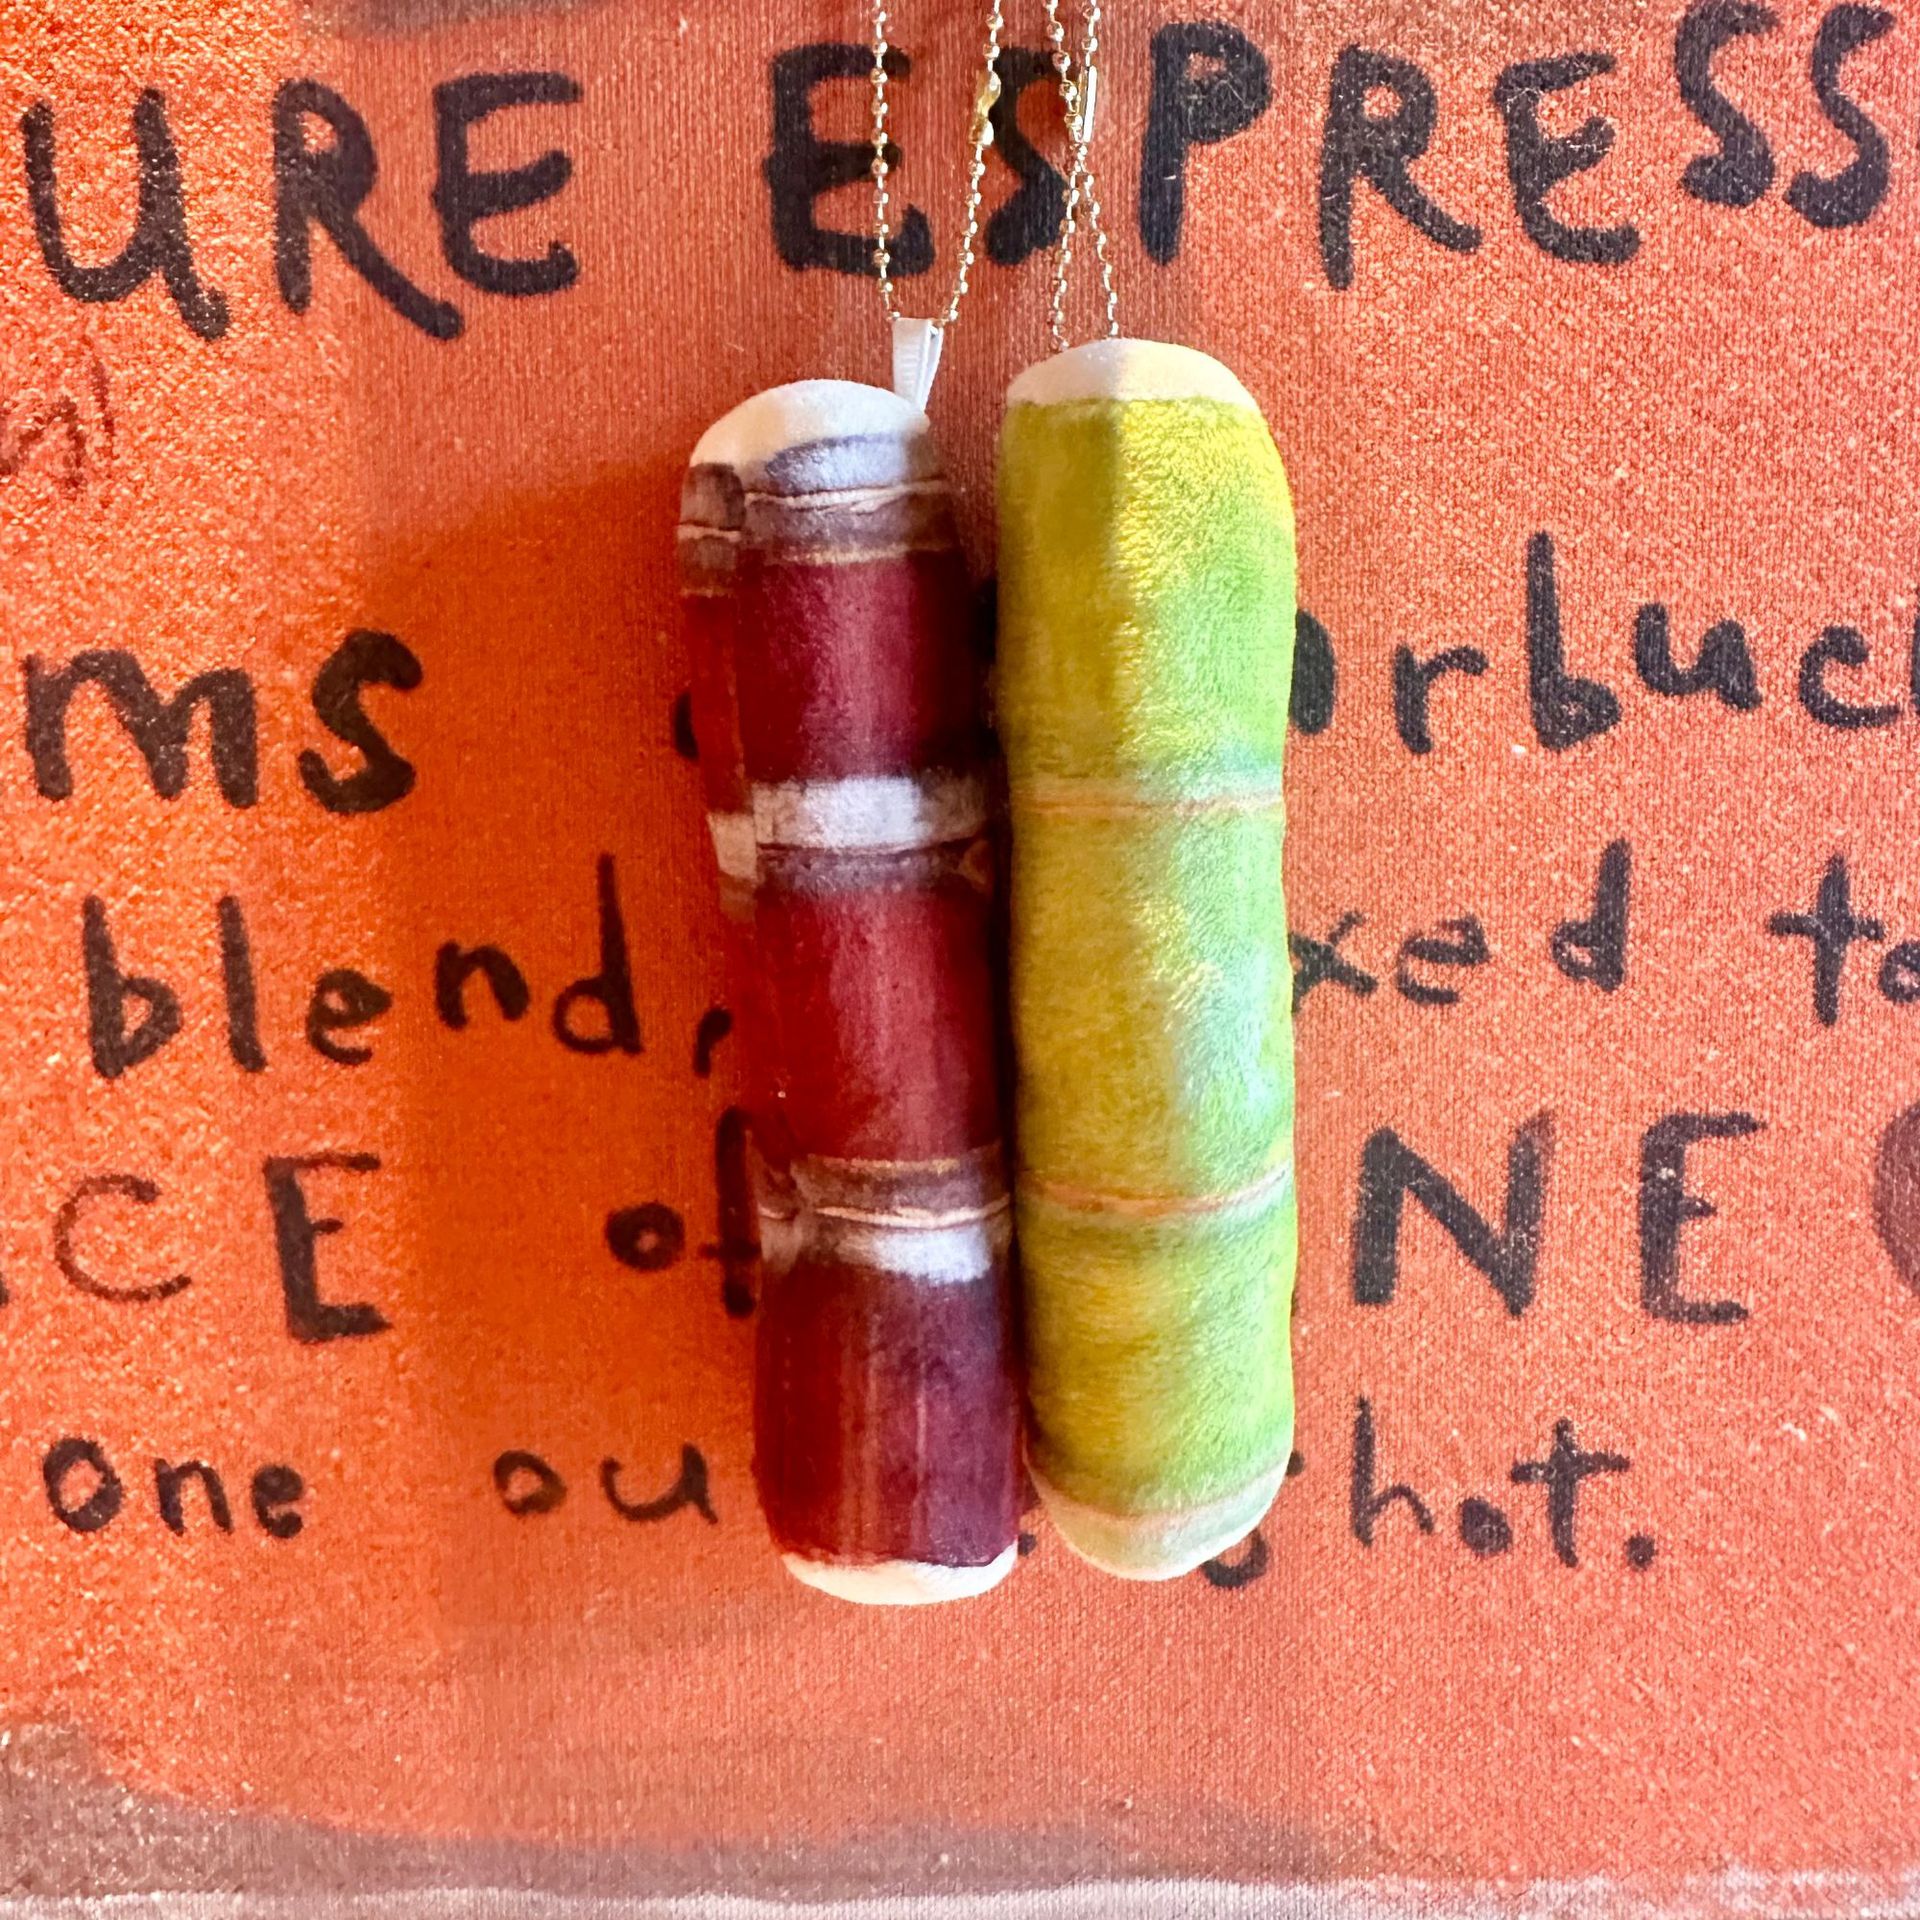 URE ESPRESS
ms arbuck
blend, xed to
CE of NE
one ou ghot.